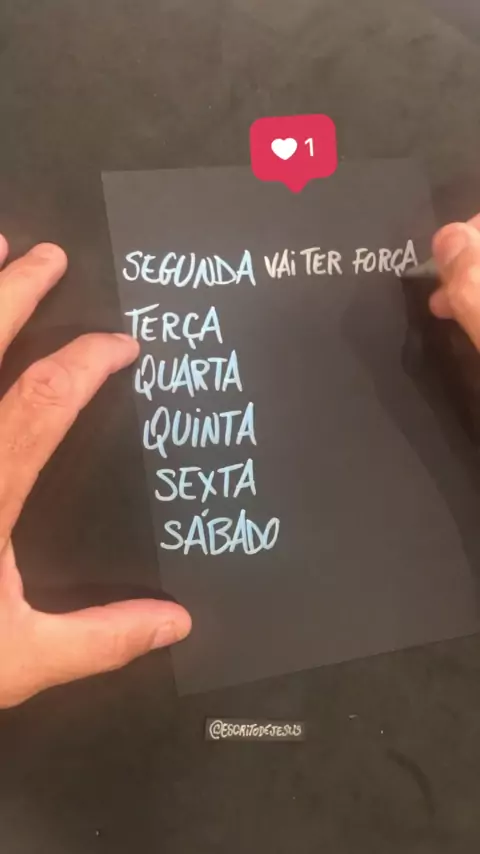 1
SEGUNDA VAI TER FORÇA
TERÇA
QUARTA
QUINTA
SEXTA
SÁBADO
@ESCRITODEJESUS